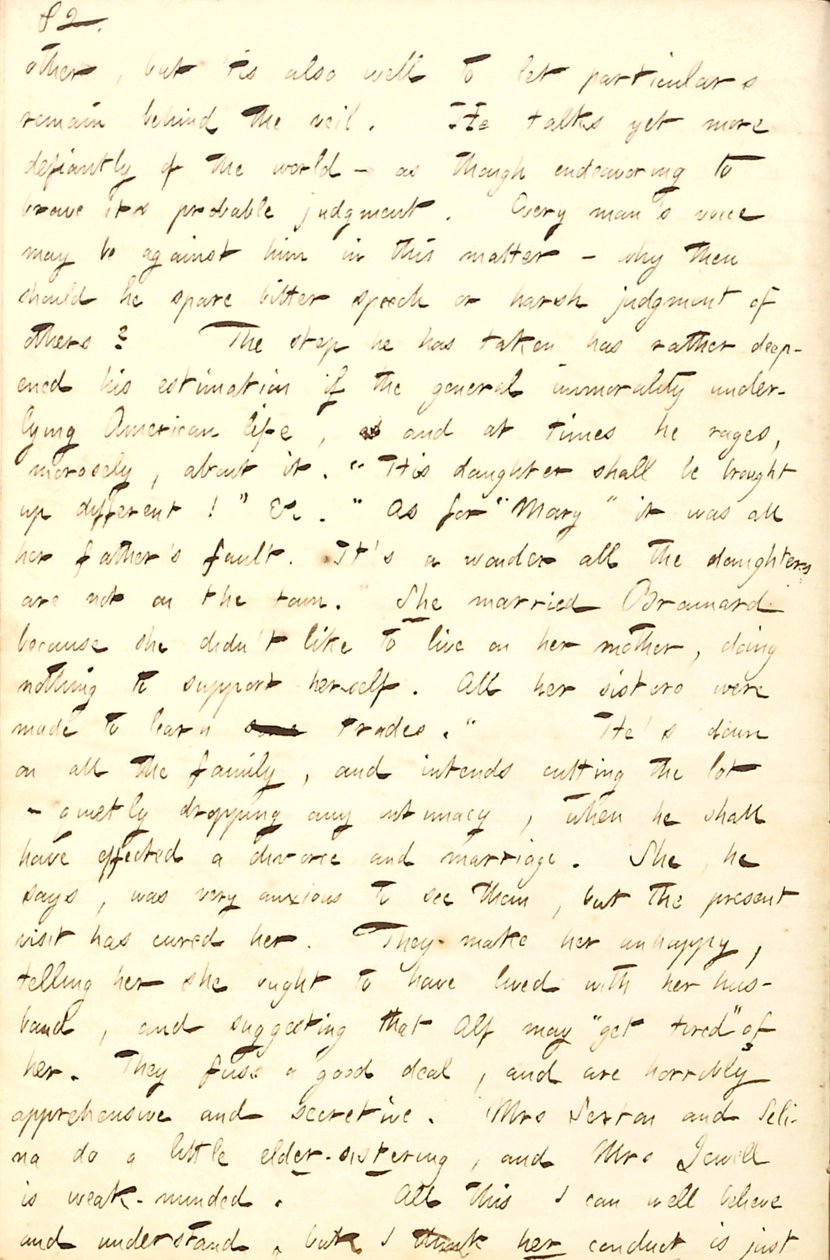 82.
other, but 'tis also well to let particulars
remain behind the veil. He talks yet more
defiantly of the world - as though endeavoring to
brave its probable judgment. Every man's voice
may be against him in this matter - why then
should he spare bitter speech or harsh judgment of
others? The step he has taken has rather deep-
ened his estimation of the general immorality under-
lying American life, and at times he rages,
morosely, about it. "His daughter shall be brought
up different!" &c. "As for "Mary" it was all
her father's fault. It's a wonder all the daughters
are not on the town." She married Brainard
because she didn't like to live on her mother, doing
nothing to support herself. All her sisters were
made to learn some trades." He's down
on all the family, and intends cutting the lot
- quietly dropping any intimacy, when he shall
have effected a divorce and marriage. She, he
says, was very anxious to see them, but the present
visit has cured her. They make her unhappy,
telling her she ought to have lived with her hus-
band, and suggesting that Alf may "get tired" of
her. They fuss a good deal, and are horribly
apprehensive and secretive. Mrs Sexton and Seli-
na do a little elder-sistering, and Mrs Jewell
is weak-minded. All this I can well believe
and understand, but I think her conduct is just